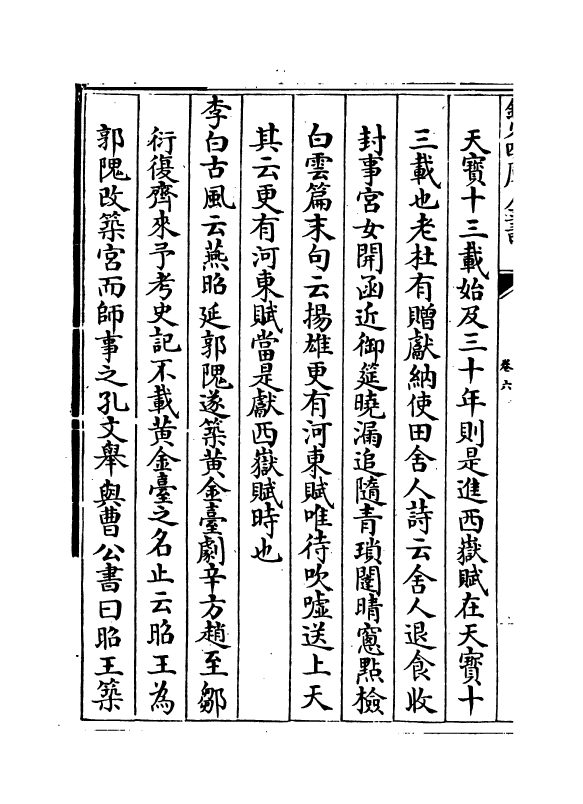 欽定四庫全書
卷六
天寳十三載始及三十年則是進西嶽賦在天寳十
三載也老杜有贈獻納使田舍人詩云舍人退食收
封事宮女開函近御筵曉漏追隨青瑣闥晴窻點檢
白雲篇末句云揚雄更有河東賦唯待吹噓送上天
其云更有河東賦當是獻西嶽賦時也
李白古風云燕昭延郭隗遂築黃金臺劇辛方趙至鄒
衍復齊來予考史記不載黃金臺之名止云昭王為
郭隗改築宮而師事之孔文舉與曹公書曰昭王築